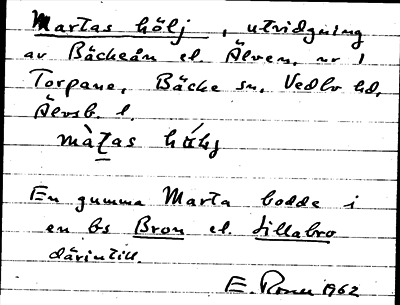 Martas hölj, utvidgning
av Bäckeån el. Älven, nr 1
Torpane, Bäcke sn, Vedbo hd,
Älvsb. l.
hö̀lj
En gumma Marta bodde i
en bs Bron el. Lillabro
därintill.
E. 1962